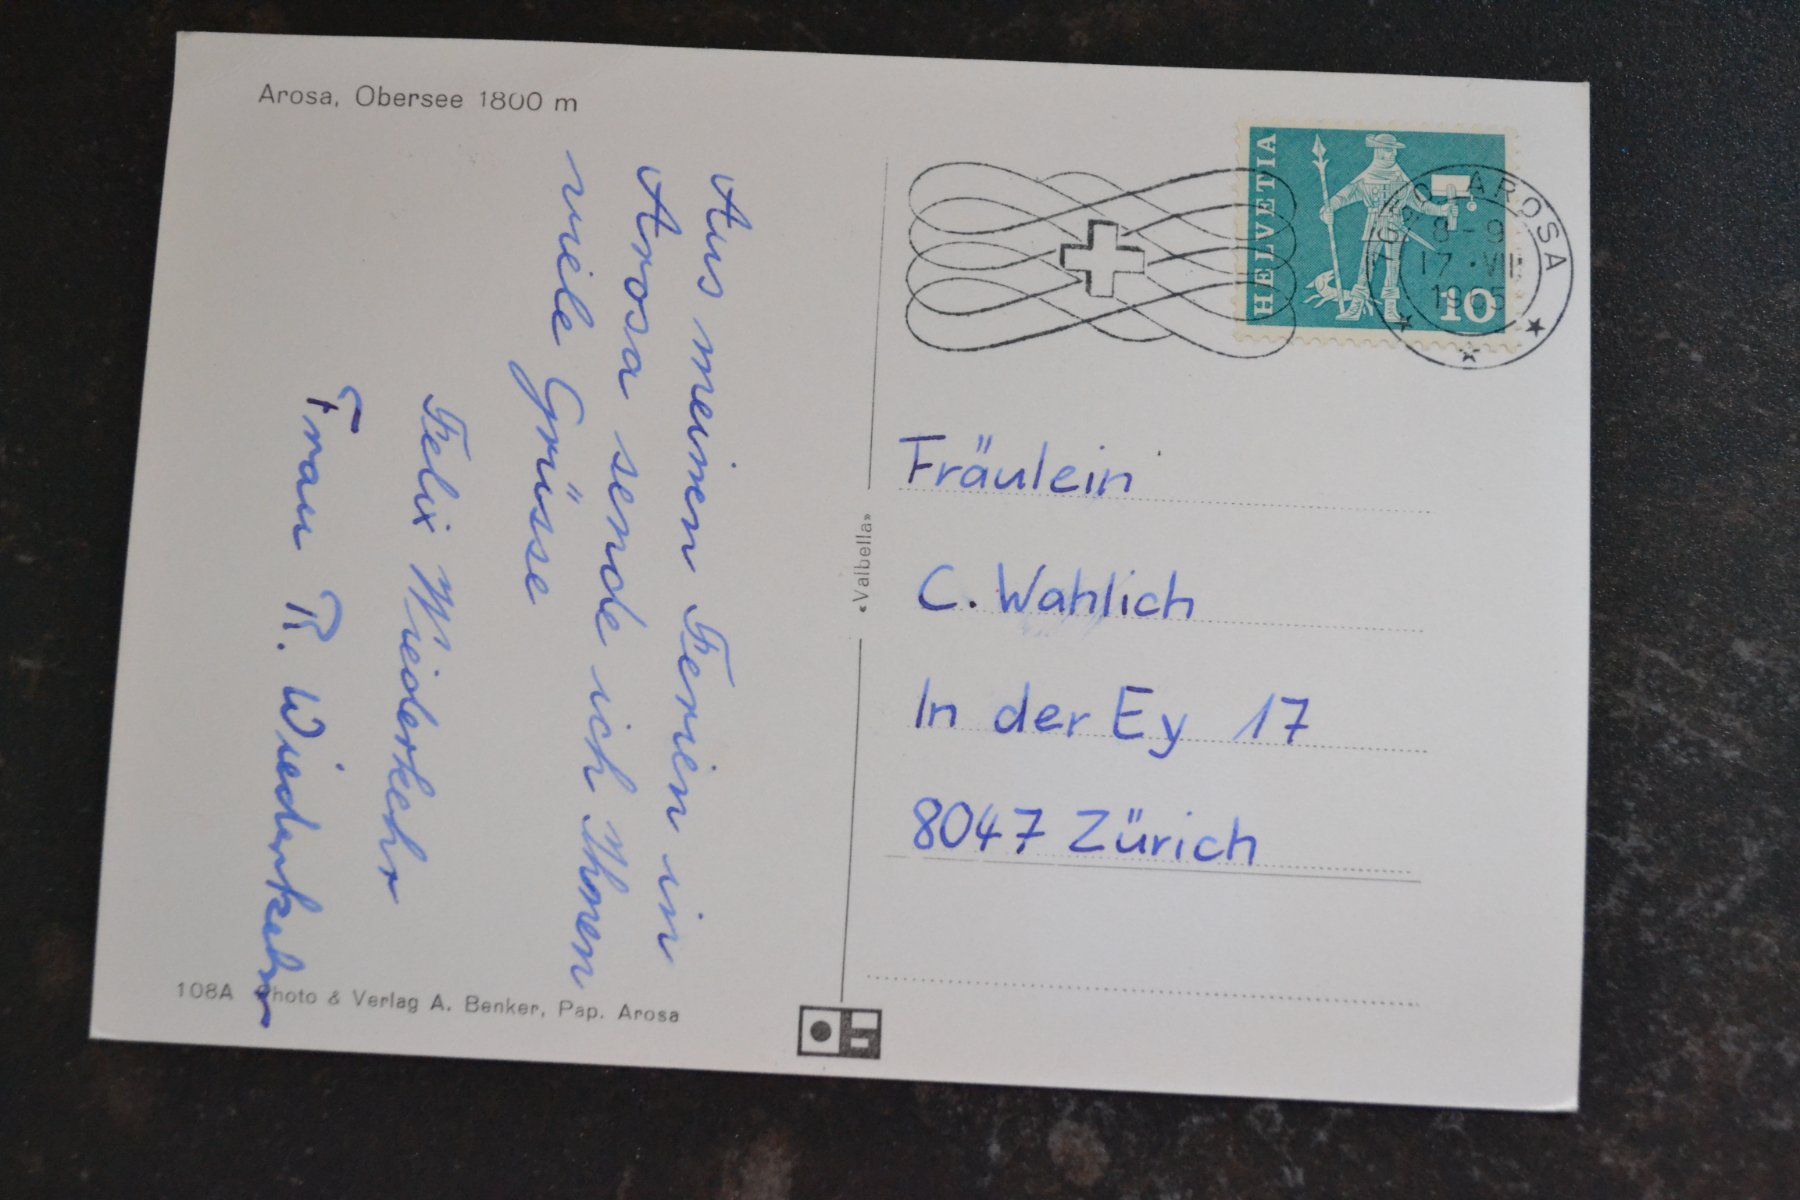 Arosa, Obersee 1800 m
Aus meinen Ferien in
Arosa sende ich Ihnen
viele Grüsse
Felix Wiederkehr
Frau R. Wiederkehr
108A Photo & Verlag A. Benker, Pap. Arosa
«Valbella»
HELVETIA
10
AROSA
8-9
17.VIII
Fräulein
C. Wahlich
In der Ey 17
8047 Zürich